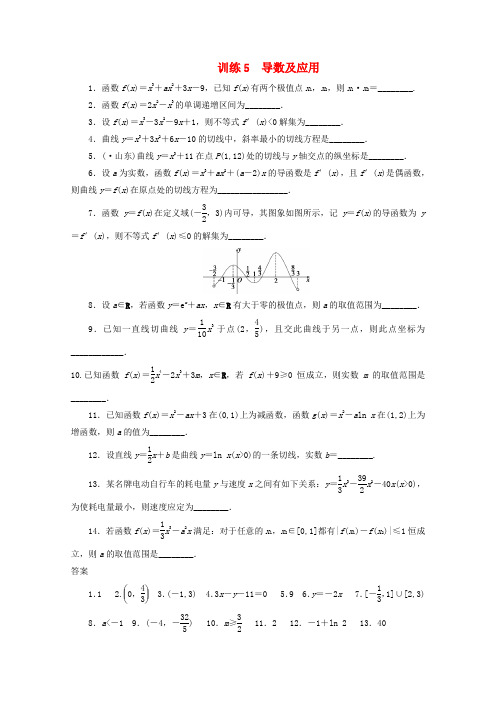 训练5 导数及应用
1．函数f(x)＝x³＋ax²＋3x－9，已知f(x)有两个极值点x₁，x₂，则x₁·x₂＝________.
2．函数f(x)＝2x²－x³的单调递增区间为________．
3．设f(x)＝x³－3x²－9x＋1，则不等式f′(x)<0解集为________．
4．曲线y＝x³＋3x²＋6x－10的切线中，斜率最小的切线方程是________．
5．(·山东)曲线y＝x³＋11在点P(1,12)处的切线与y轴交点的纵坐标是________．
6．设a为实数，函数f(x)＝x³＋ax²＋(a－2)x的导函数是f′(x)，且f′(x)是偶函数，
则曲线y＝f(x)在原点处的切线方程为________________．
7．函数y＝f(x)在定义域(－3/2，3)内可导，其图象如图所示，记y＝f(x)的导函数为y
＝f′(x)，则不等式f′(x)≤0的解集为________．
8．设a∈R，若函数y＝eˣ＋ax，x∈R有大于零的极值点，则a的取值范围为________．
9．已知一直线切曲线y＝1/10x³于点(2，4/5)，且交此曲线于另一点，则此点坐标为
____________．
10.已知函数f(x)＝1/2x⁴－2x³＋3m，x∈R，若f(x)＋9≥0恒成立，则实数m的取值范围是
________．
11．已知函数f(x)＝x²－ax＋3在(0,1)上为减函数，函数g(x)＝x²－aln x在(1,2)上为
增函数，则a的值为________．
12．设直线y＝1/2x＋b是曲线y＝ln x(x>0)的一条切线，实数b＝________.
13．某名牌电动自行车的耗电量y与速度x之间有如下关系：y＝1/3x³－39/2x²－40x(x>0)，
为使耗电量最小，则速度应定为________．
14．若函数f(x)＝1/3x³－a²x满足：对于任意的x₁，x₂∈[0,1]都有|f(x₁)－f(x₂)|≤1恒成
立，则a的取值范围是________．
答案
1.1 2.(0，4/3) 3.(－1,3) 4.3x－y－11＝0 5.9 6.y＝－2x 7.[－1/3,1]∪[2,3)
8．a<－1 9．(－4，－32/5) 10．m≥3/2 11．2 12．－1＋ln 2 13．40